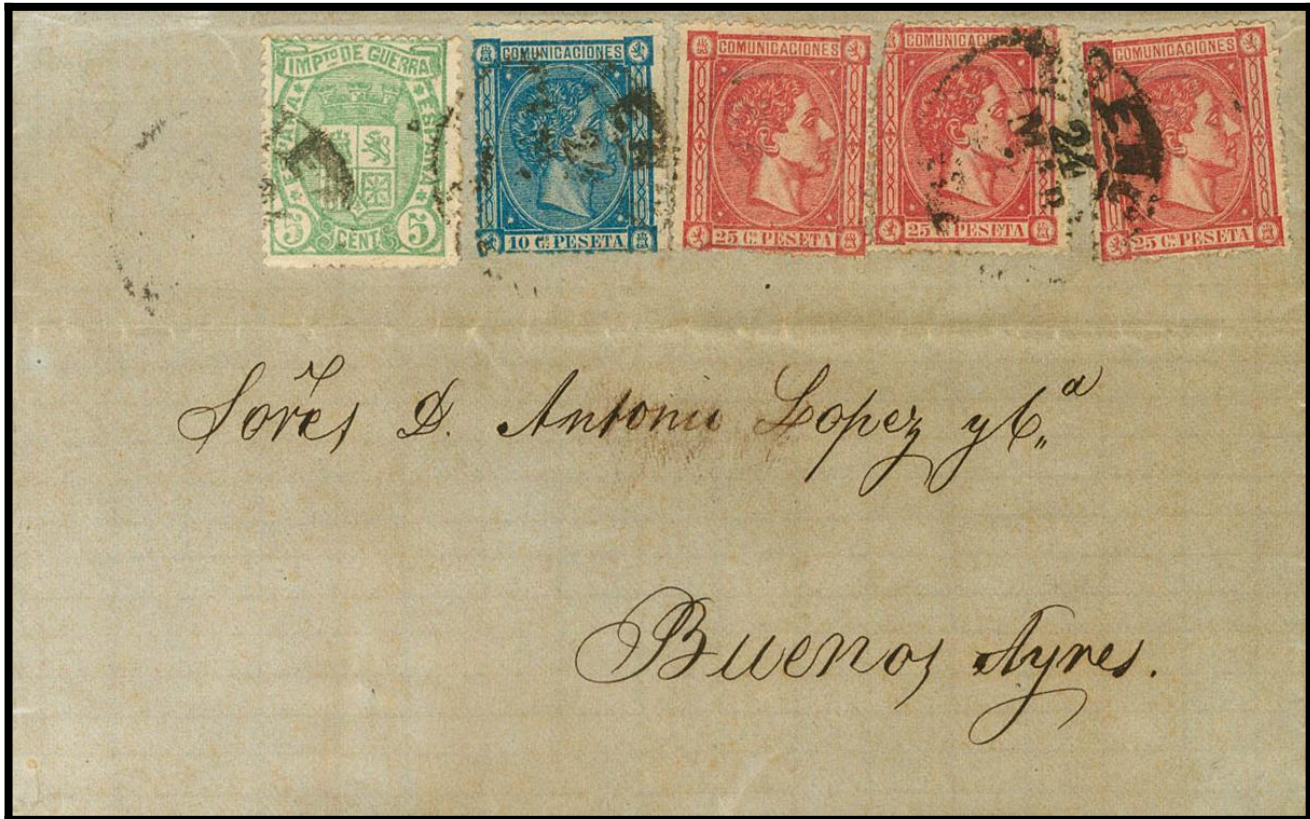 IMPTO DE GUERRA
ESPAÑA
5 CENT. 5
COMUNICACIONES
10 C. PESETA
COMUNICACIONES
25 C. PESETA
COMUNICACIONES
25 C. PESETA
COMUNICACIONES
25 C. PESETA
24
Sores D. Antonio Lopez y Ca
Buenos Ayres.